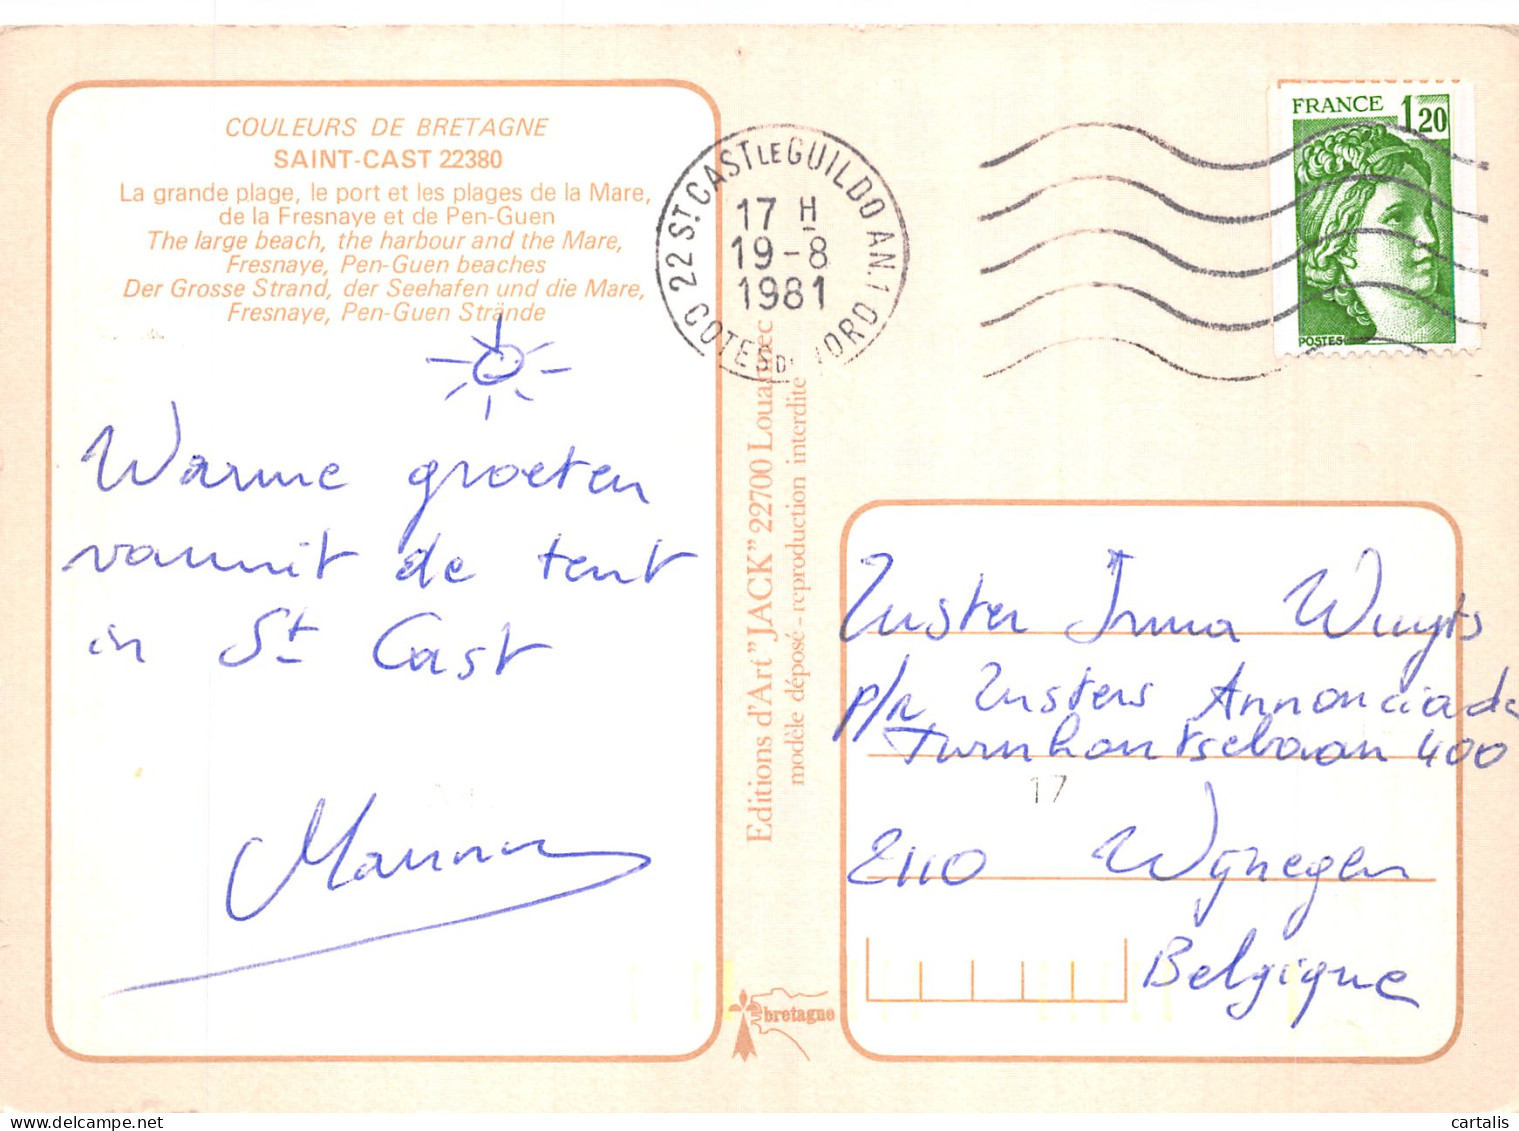 COULEURS DE BRETAGNE
SAINT-CAST 22380
La grande plage, le port et les plages de la Mare,
de la Fresnaye et de Pen-Guen
The large beach, the harbour and the Mare,
Fresnaye, Pen-Guen beaches
Der Grosse Strand, der Seehafen und die Mare,
Fresnaye, Pen-Guen Strände
Warme groeten
vanuit de tent
in St Cast
Editions d'Art "JACK" 22700 Louannec
modèle déposé - reproduction interdite
bretagne
22 ST CAST LE GUILDO AN.1
17 H
19-8
1981
COTES DU NORD
FRANCE 1,20
POSTES
Zuster Irma Wuyts
p/a Zusters Annonciade
Turnhoutsebaan 400
17
2110 Wijnegem
Belgique
cartalis